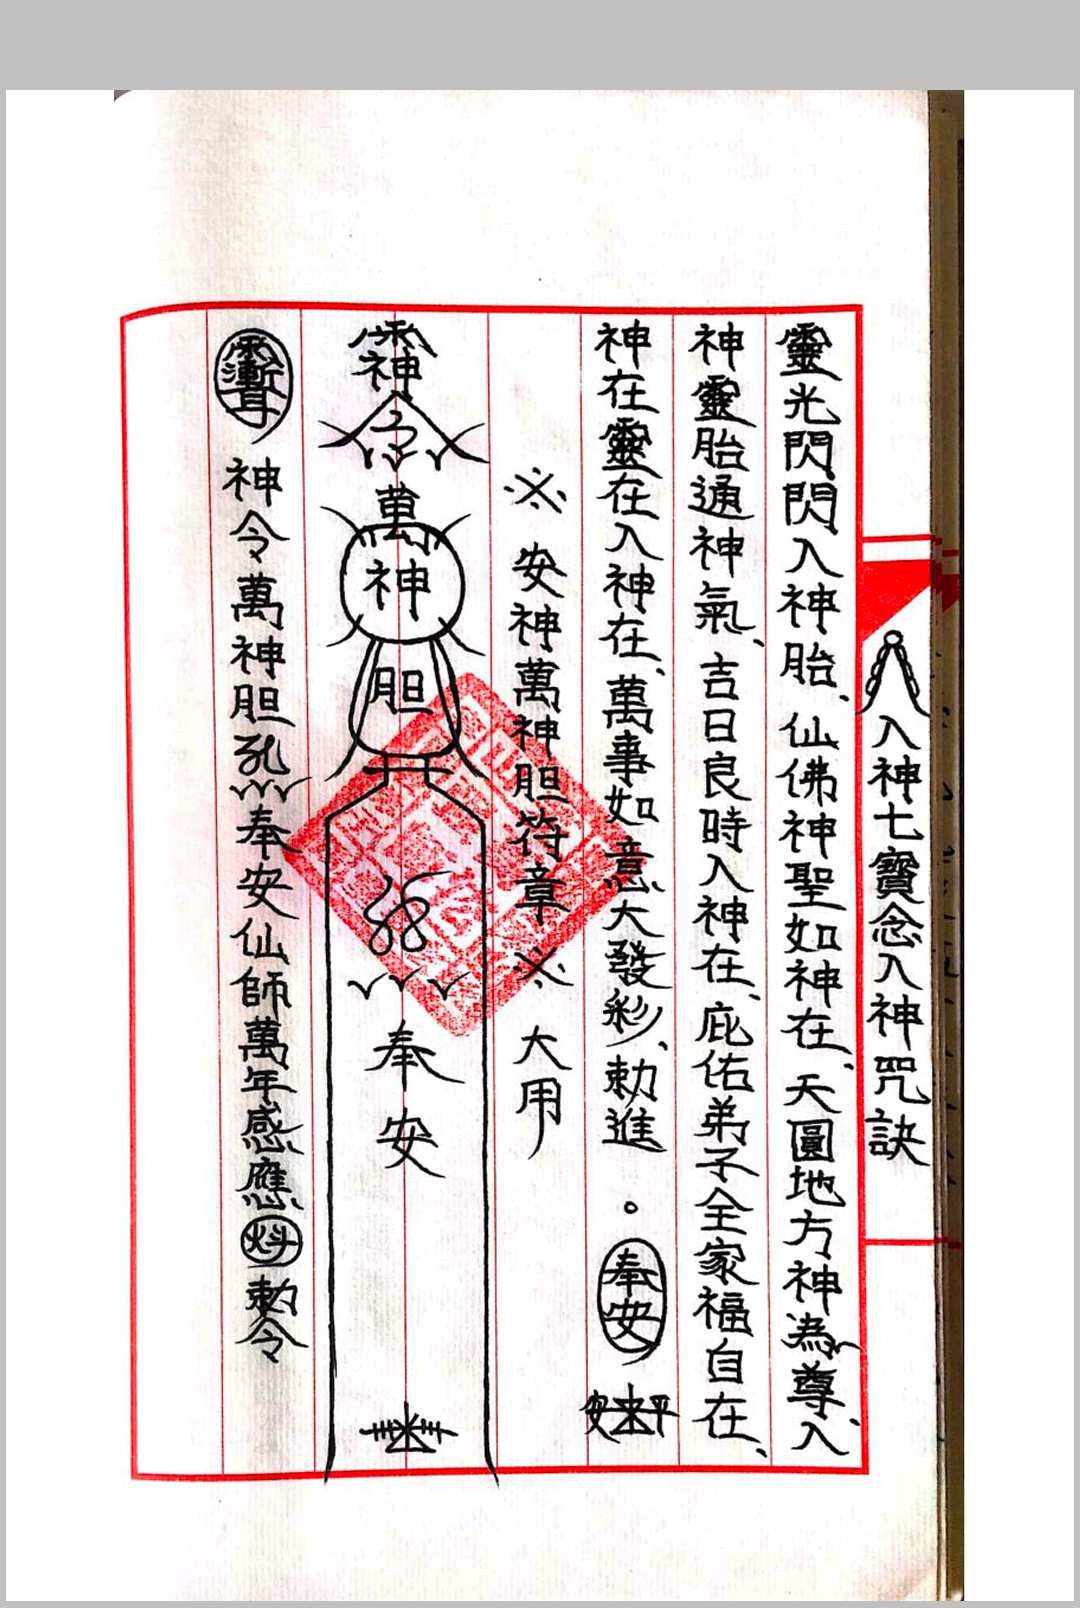 入神七寶念入神咒訣
靈光閃閃入神胎、仙佛神聖如神在、天圓地方神為尊、入
神靈胎通神氣、吉日良時入神在、庇佑弟子全家福自在、
神在靈在入神在、萬事如意大發彩、勅進。奉安 平安
※安神萬神胆符章※大用
神
令
萬
神
胆
奉安
神令萬神胆 奉安仙師萬年感應 勅令